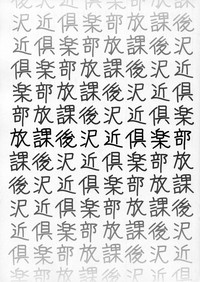 沢近倶楽部放課後
近倶楽部放課後沢
倶楽部放課後沢近
楽部放課後沢近倶
部放課後沢近倶楽
放課後沢近倶楽部
課後沢近倶楽部放
後沢近倶楽部放課
沢近倶楽部放課後
近倶楽部放課後沢
倶楽部放課後沢近
楽部放課後沢近倶